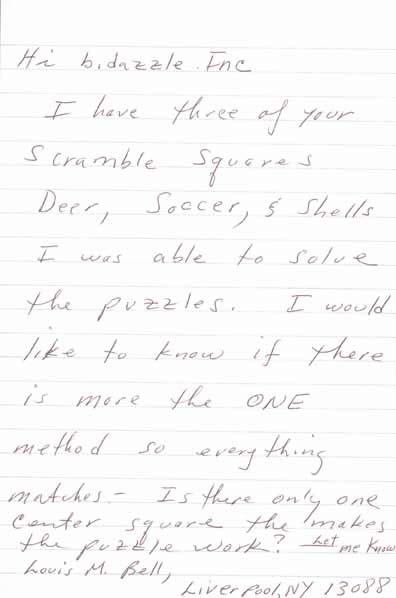 Hi b.dazzle.Inc
I have three of your
Scramble Squares
Deer, Soccer, & Shells
I was able to solve
the puzzles. I would
like to know if there
is more the ONE
method so everything
matches - Is there only one
center square the makes
the puzzle work? Let me know
Louis M. Bell,
Liverpool, NY 13088